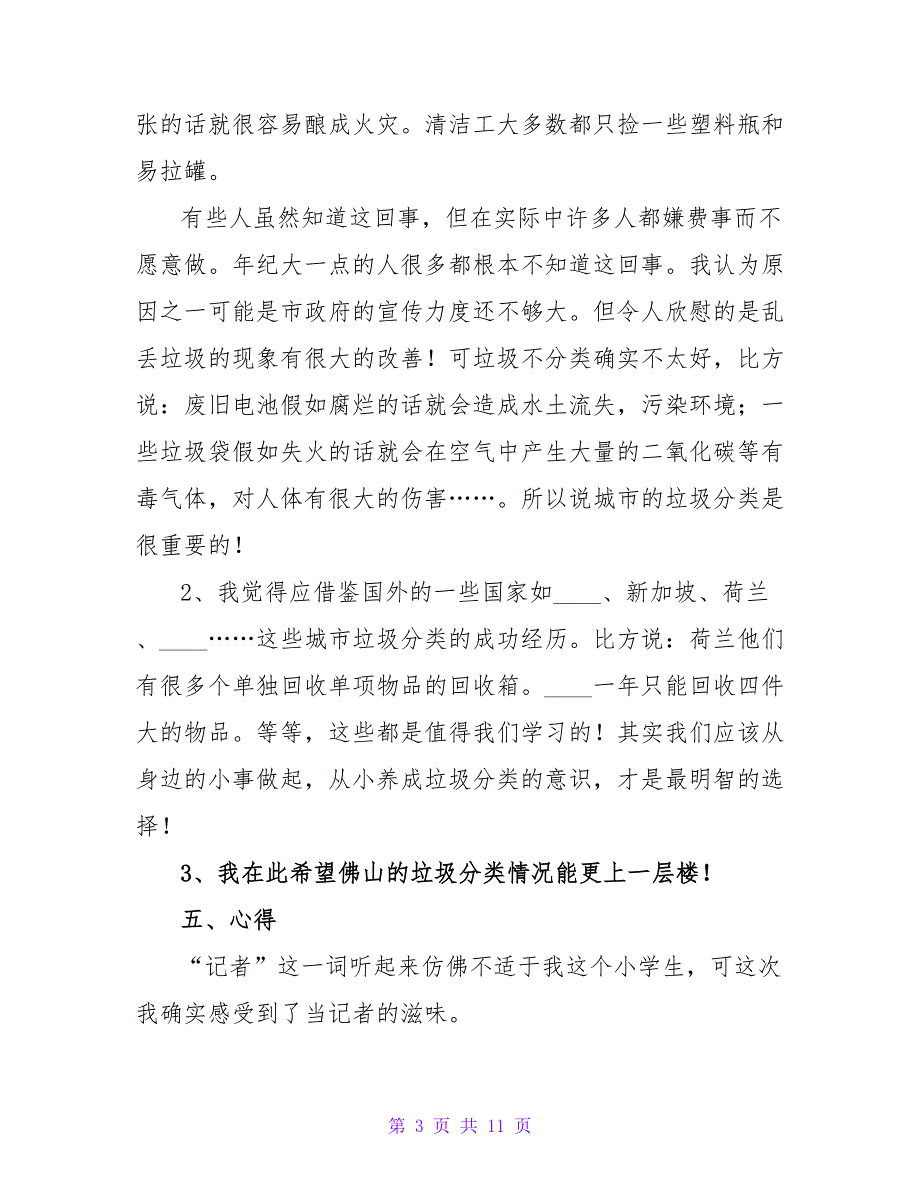 张的话就很容易酿成火灾。清洁工大多数都只捡一些塑料瓶和
易拉罐。
有些人虽然知道这回事，但在实际中许多人都嫌费事而不
愿意做。年纪大一点的人很多都根本不知道这回事。我认为原
因之一可能是市政府的宣传力度还不够大。但令人欣慰的是乱
丢垃圾的现象有很大的改善！可垃圾不分类确实不太好，比方
说：废旧电池假如腐烂的话就会造成水土流失，污染环境；一
些垃圾袋假如失火的话就会在空气中产生大量的二氧化碳等有
毒气体，对人体有很大的伤害……。所以说城市的垃圾分类是
很重要的！
2、我觉得应借鉴国外的一些国家如____、新加坡、荷兰
、____……这些城市垃圾分类的成功经历。比方说：荷兰他们
有很多个单独回收单项物品的回收箱。____一年只能回收四件
大的物品。等等，这些都是值得我们学习的！其实我们应该从
身边的小事做起，从小养成垃圾分类的意识，才是最明智的选
择！
3、我在此希望佛山的垃圾分类情况能更上一层楼！
五、心得
“记者”这一词听起来仿佛不适于我这个小学生，可这次
我确实感受到了当记者的滋味。
第 3 页 共 11 页